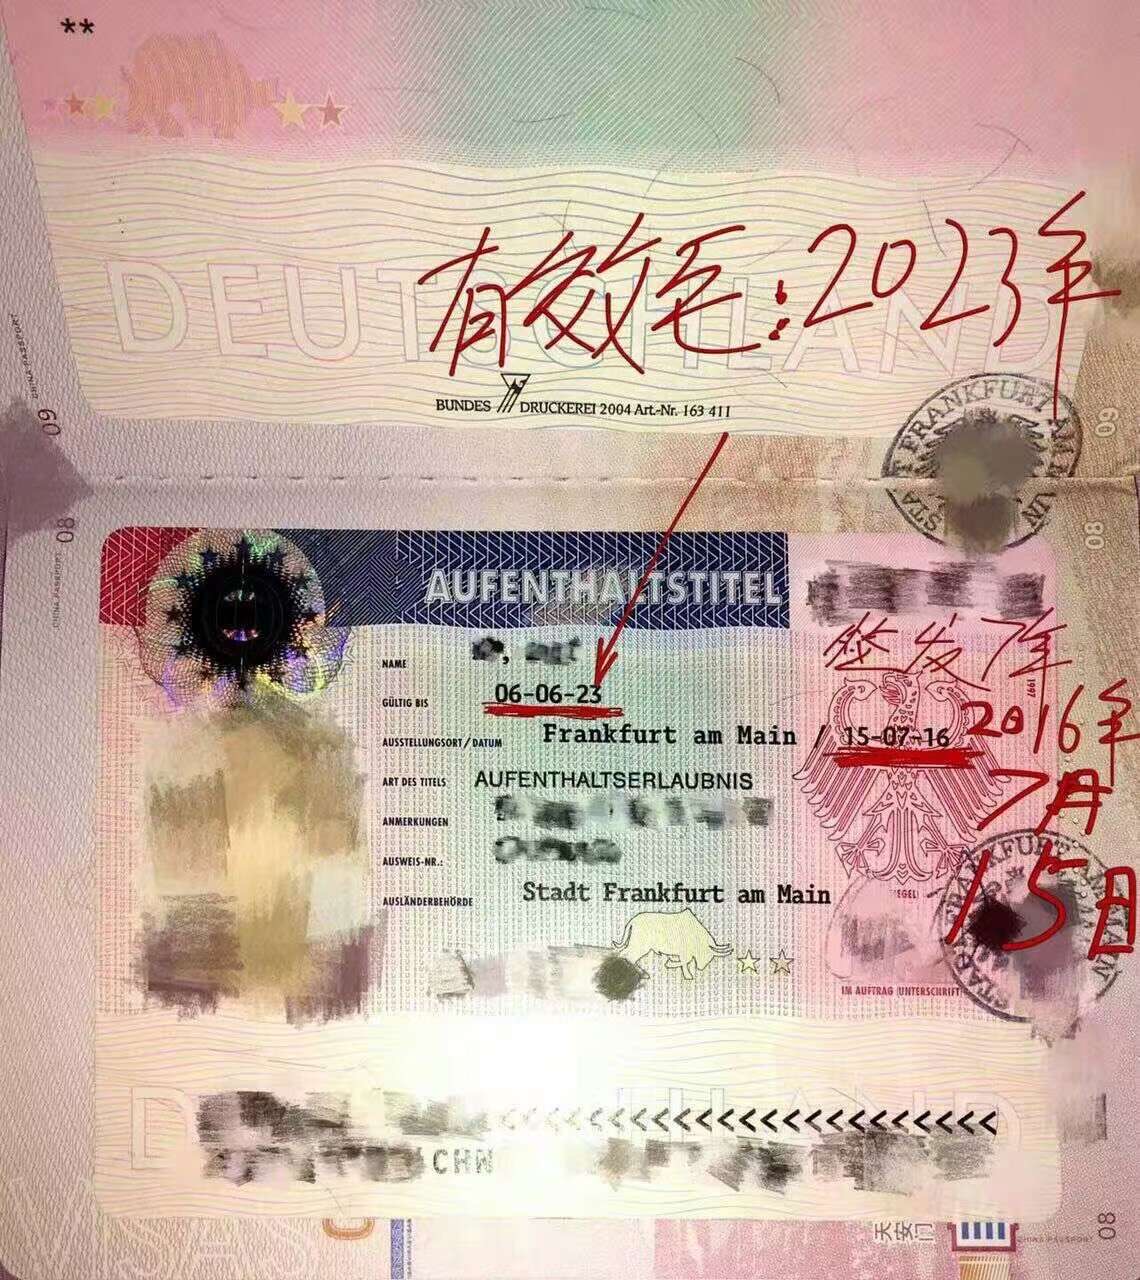 **
有效至:2023年
DEUTSCHLAND
BUNDES DRUCKEREI 2004 Art.-Nr. 163 411
CHINA PASSPORT
09
09
STADT FRANKFURT AM MAIN
08
08
CHINA PASSPORT
AUFENTHALTSTITEL
签发7年
NAME
GÜLTIG BIS 06-06-23
1997
2016年
AUSSTELLUNGSORT/DATUM Frankfurt am Main / 15-07-16
7月
ART DES TITELS AUFENTHALTSERLAUBNIS
ANMERKUNGEN
15日
AUSWEIS-NR.:
AUSLÄNDERBEHÖRDE Stadt Frankfurt am Main
IM AUFTRAG (UNTERSCHRIFT)
<<<<<<<<<<<<<<<<<<<<<<
CHN
天安门
CHINA PASSPORT
08